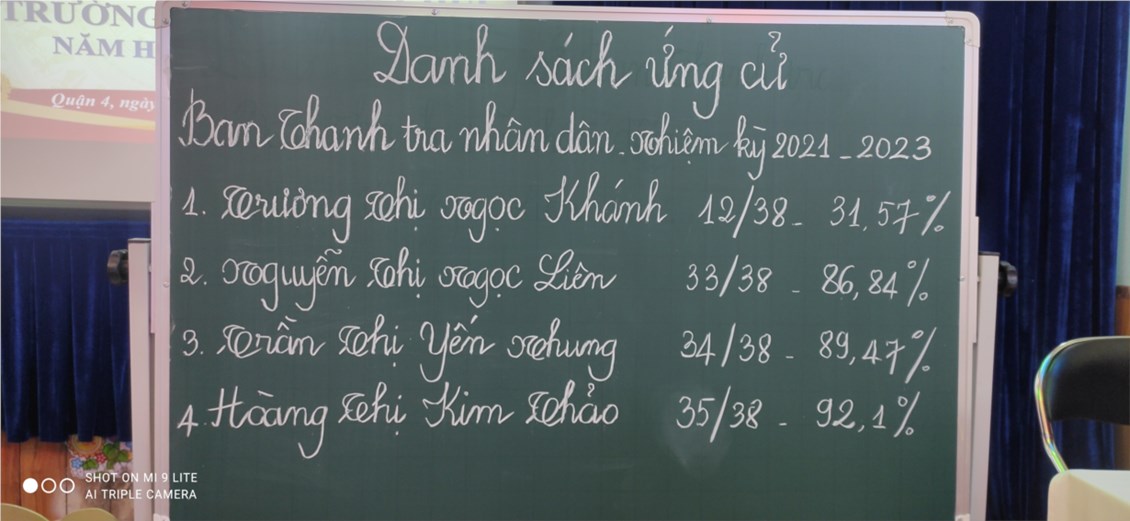 TRƯỜNG
NĂM H
Quận 4, ngày
Danh sách ứng cử
Ban Thanh tra nhân dân - Nhiệm kỳ 2021 - 2023
1. Trương Thị Ngọc Khánh 12/38 - 31,57%
2. Nguyễn Thị Ngọc Liên 33/38 - 86,84%
3. Trần Thị Yến Nhung 34/38 - 89,47%
4. Hoàng Thị Kim Thảo 35/38 - 92,1%
SHOT ON MI 9 LITE
AI TRIPLE CAMERA